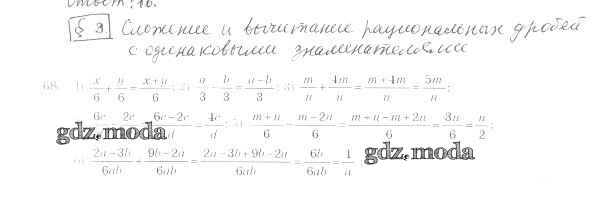 Ответ: 16.
§ 3. Сложение и вычитание рациональных дробей
с одинаковыми знаменателями
68. 1) x/6 + y/6 = (x+y)/6; 2) a/3 − b/3 = (a−b)/3; 3) m/n + 4m/n = (m+4m)/n = 5m/n;
6c − 2c = (6c−2c)/d = 4c/d; 5) (m+n)/6 − (m−2n)/6 = (m+n−m+2n)/6 = 3n/6 = n/2;
gdz.moda
6) (2a−3b)/6ab + (9b−2a)/6ab = (2a−3b+9b−2a)/6ab = 6b/6ab = 1/a
gdz.moda